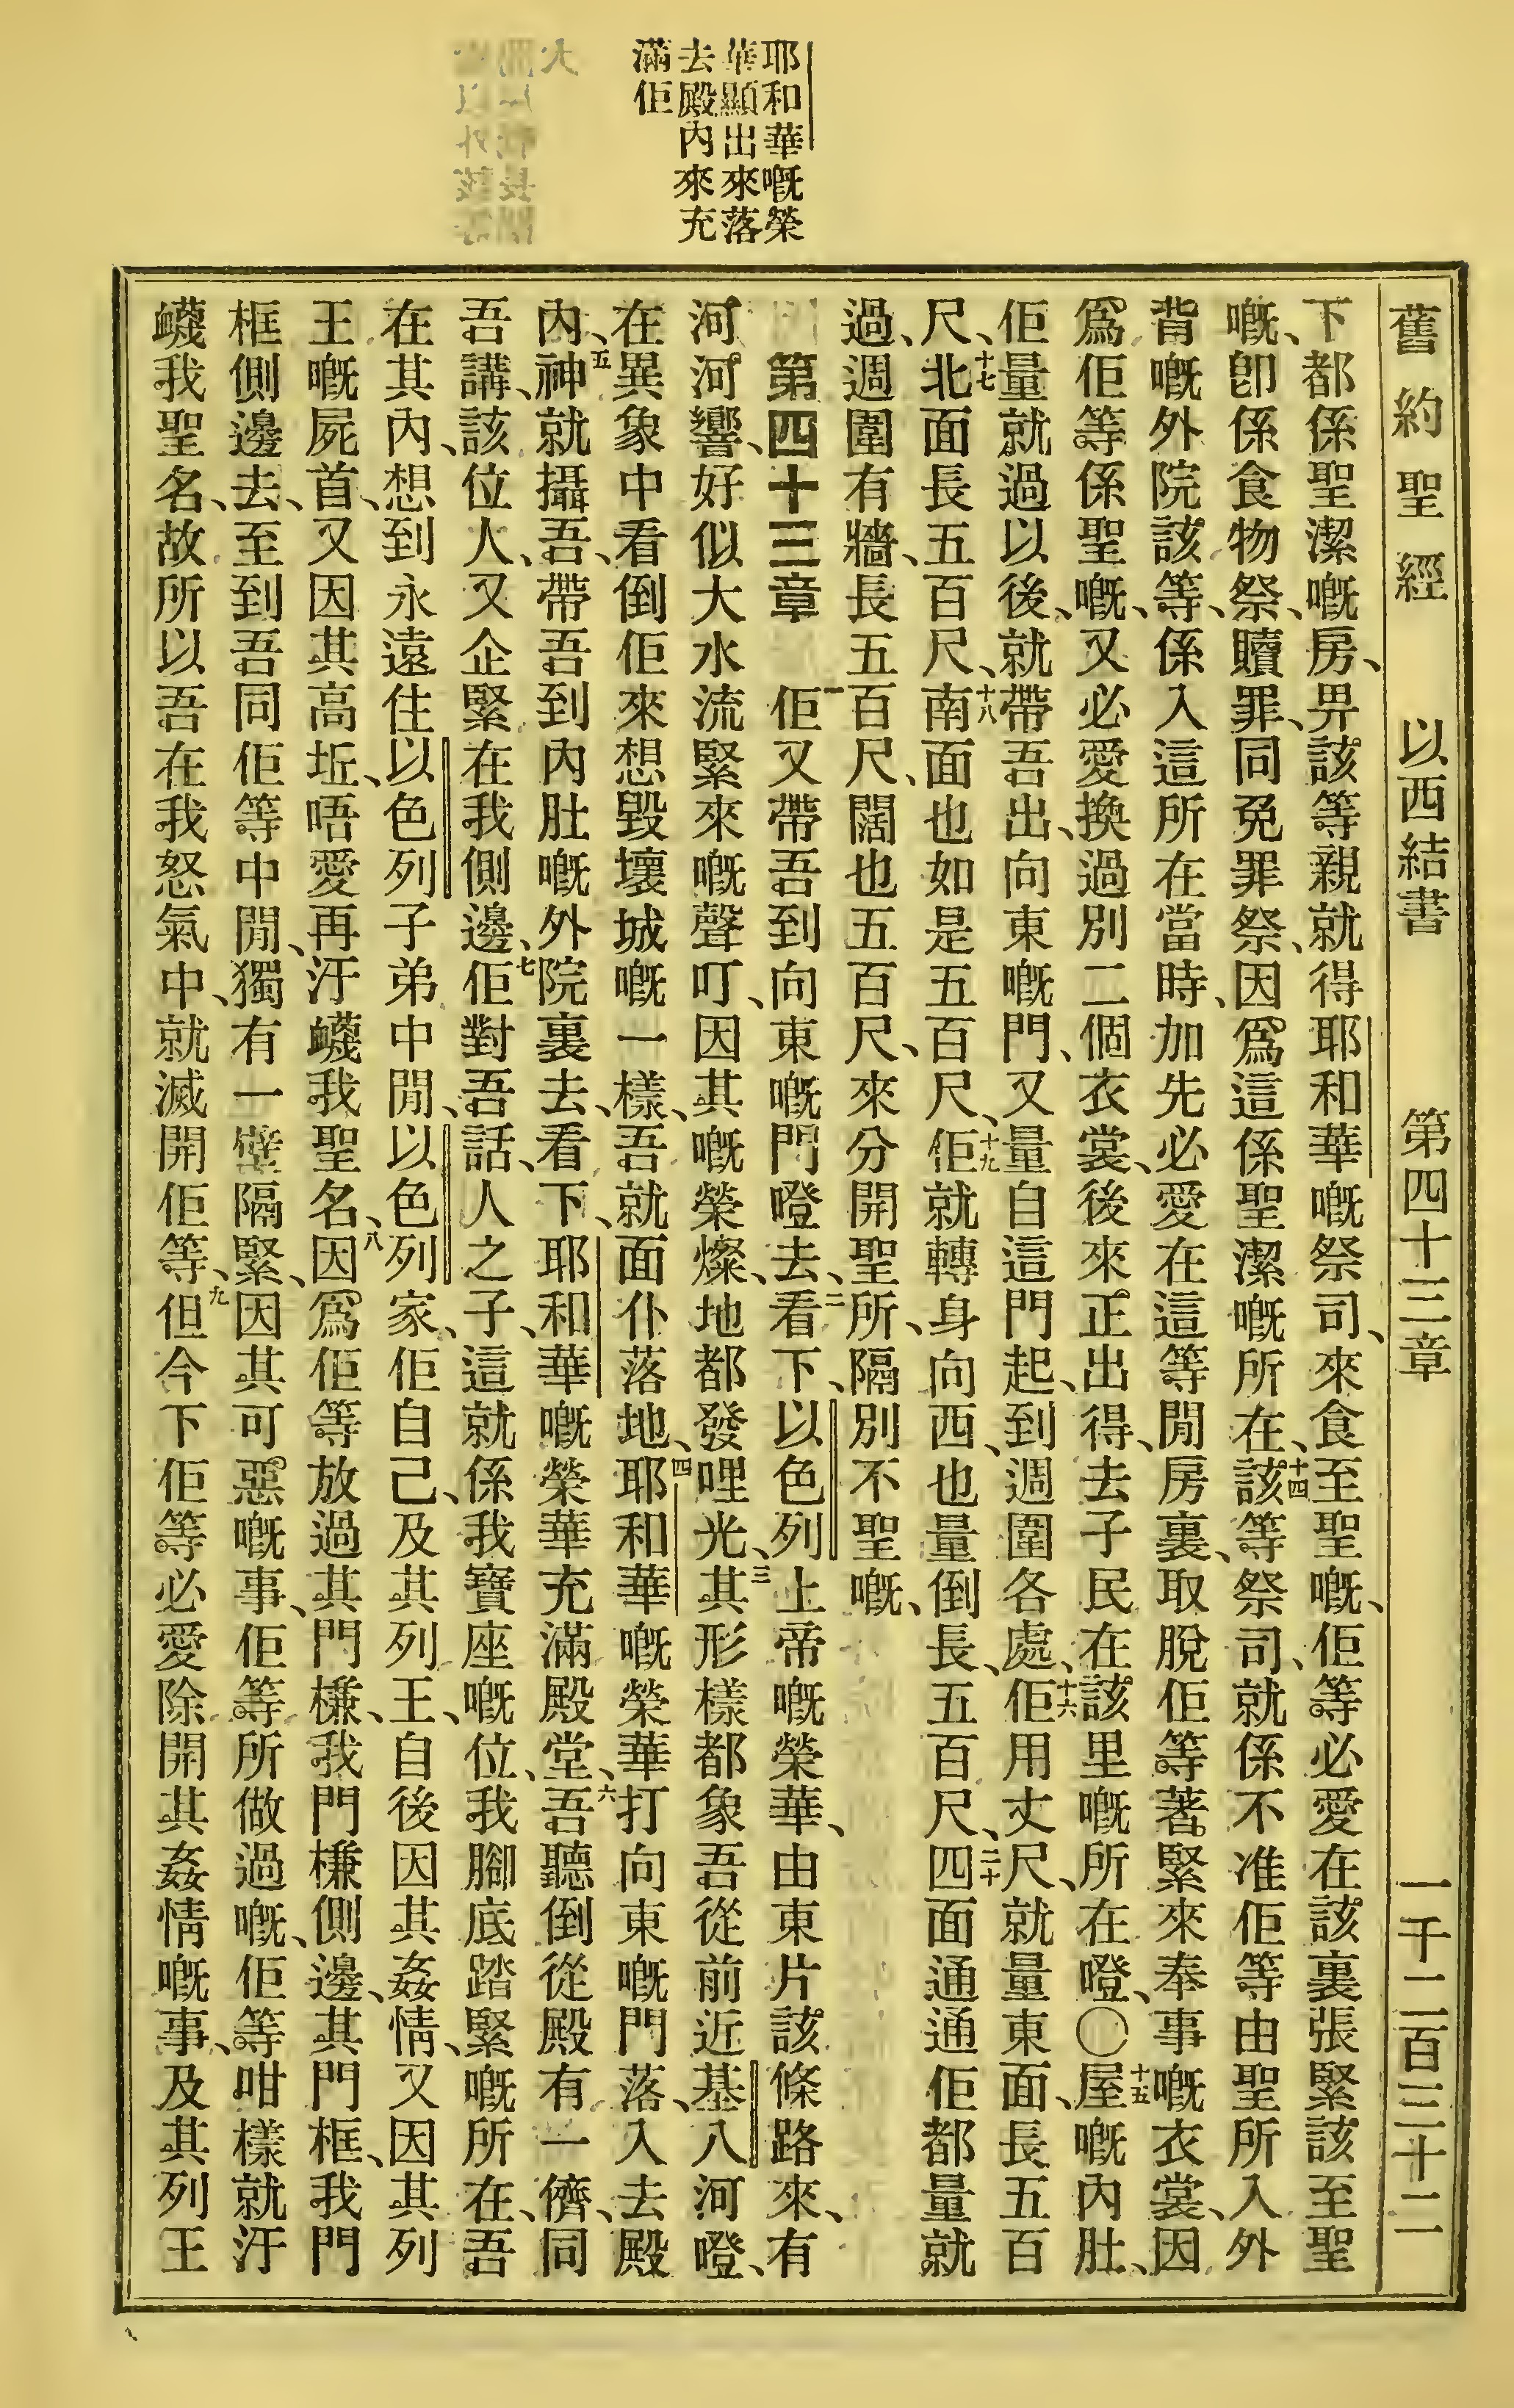 耶和華嘅榮
華顯出來落
去殿內來充
滿佢
舊約聖經 以西結書 第四十三章 一千二百三十二
下都係聖潔嘅房、畀該等親就得耶和華嘅祭司、來食至聖嘅、佢等必愛在該裏張緊該至聖
嘅、卽係食物祭、贖罪、同免罪祭、因爲這係聖潔嘅所在、十四該等祭司、就係不准佢等由聖所入外
背嘅外院該等、係入這所在當時、加先必愛在這等閒房裏、取脫佢等著緊來奉事嘅衣裳、因
爲佢等係聖嘅、又必愛換過別二個衣裳、後來正出得、去子民在該里嘅所在嶝、〇十五屋嘅內肚、
佢量就過以後、就帶吾出、向東嘅門、又量自這門起、到週圍各處、十六佢用丈尺、就量東面、長五百
尺、十七北面長五百尺、十八南面也如是五百尺、十九佢就轉身向西、也量倒長、五百尺、二十四面通通佢都量就
過、週圍有牆、長五百尺、闊也五百尺、來分開聖所、隔別不聖嘅、
第四十三章 一佢又帶吾到向東嘅門嶝去、二看下、以色列上帝嘅榮華、由東片該條路來、有
河河響、好似大水流緊來嘅聲叮、因其嘅榮燦、地都發哩光、三其形樣都象吾從前近基八河嶝、
在異象中看倒佢來想毀壞城嘅一樣、吾就面仆落地、四耶和華嘅榮華打向東嘅門落、入去殿
內、五神就攝吾、帶吾到內肚嘅外院裏去、看下、耶和華嘅榮華充滿殿堂、六吾聽倒從殿有一儕、同
吾講、該位人、又企緊在我側邊、七佢對吾話、人之子、這就係我寶座嘅位、我腳底踏緊嘅所在、吾
在其內、想到永遠住以色列子弟中閒、以色列家、佢自己、及其列王、自後因其姦情、又因其列
王嘅屍首、又因其高坵、唔愛再汙衊我聖名、八因爲佢等放過其門槏、我門槏側邊、其門框、我門
框側邊去、至到吾同佢等中閒、獨有一壁隔緊、因其可惡嘅事、佢等所做過嘅、佢等咁樣就汙
衊我聖名、故所以吾在我怒氣中、就滅開佢等、九但今下佢等必愛除開其姦情嘅事、及其列王